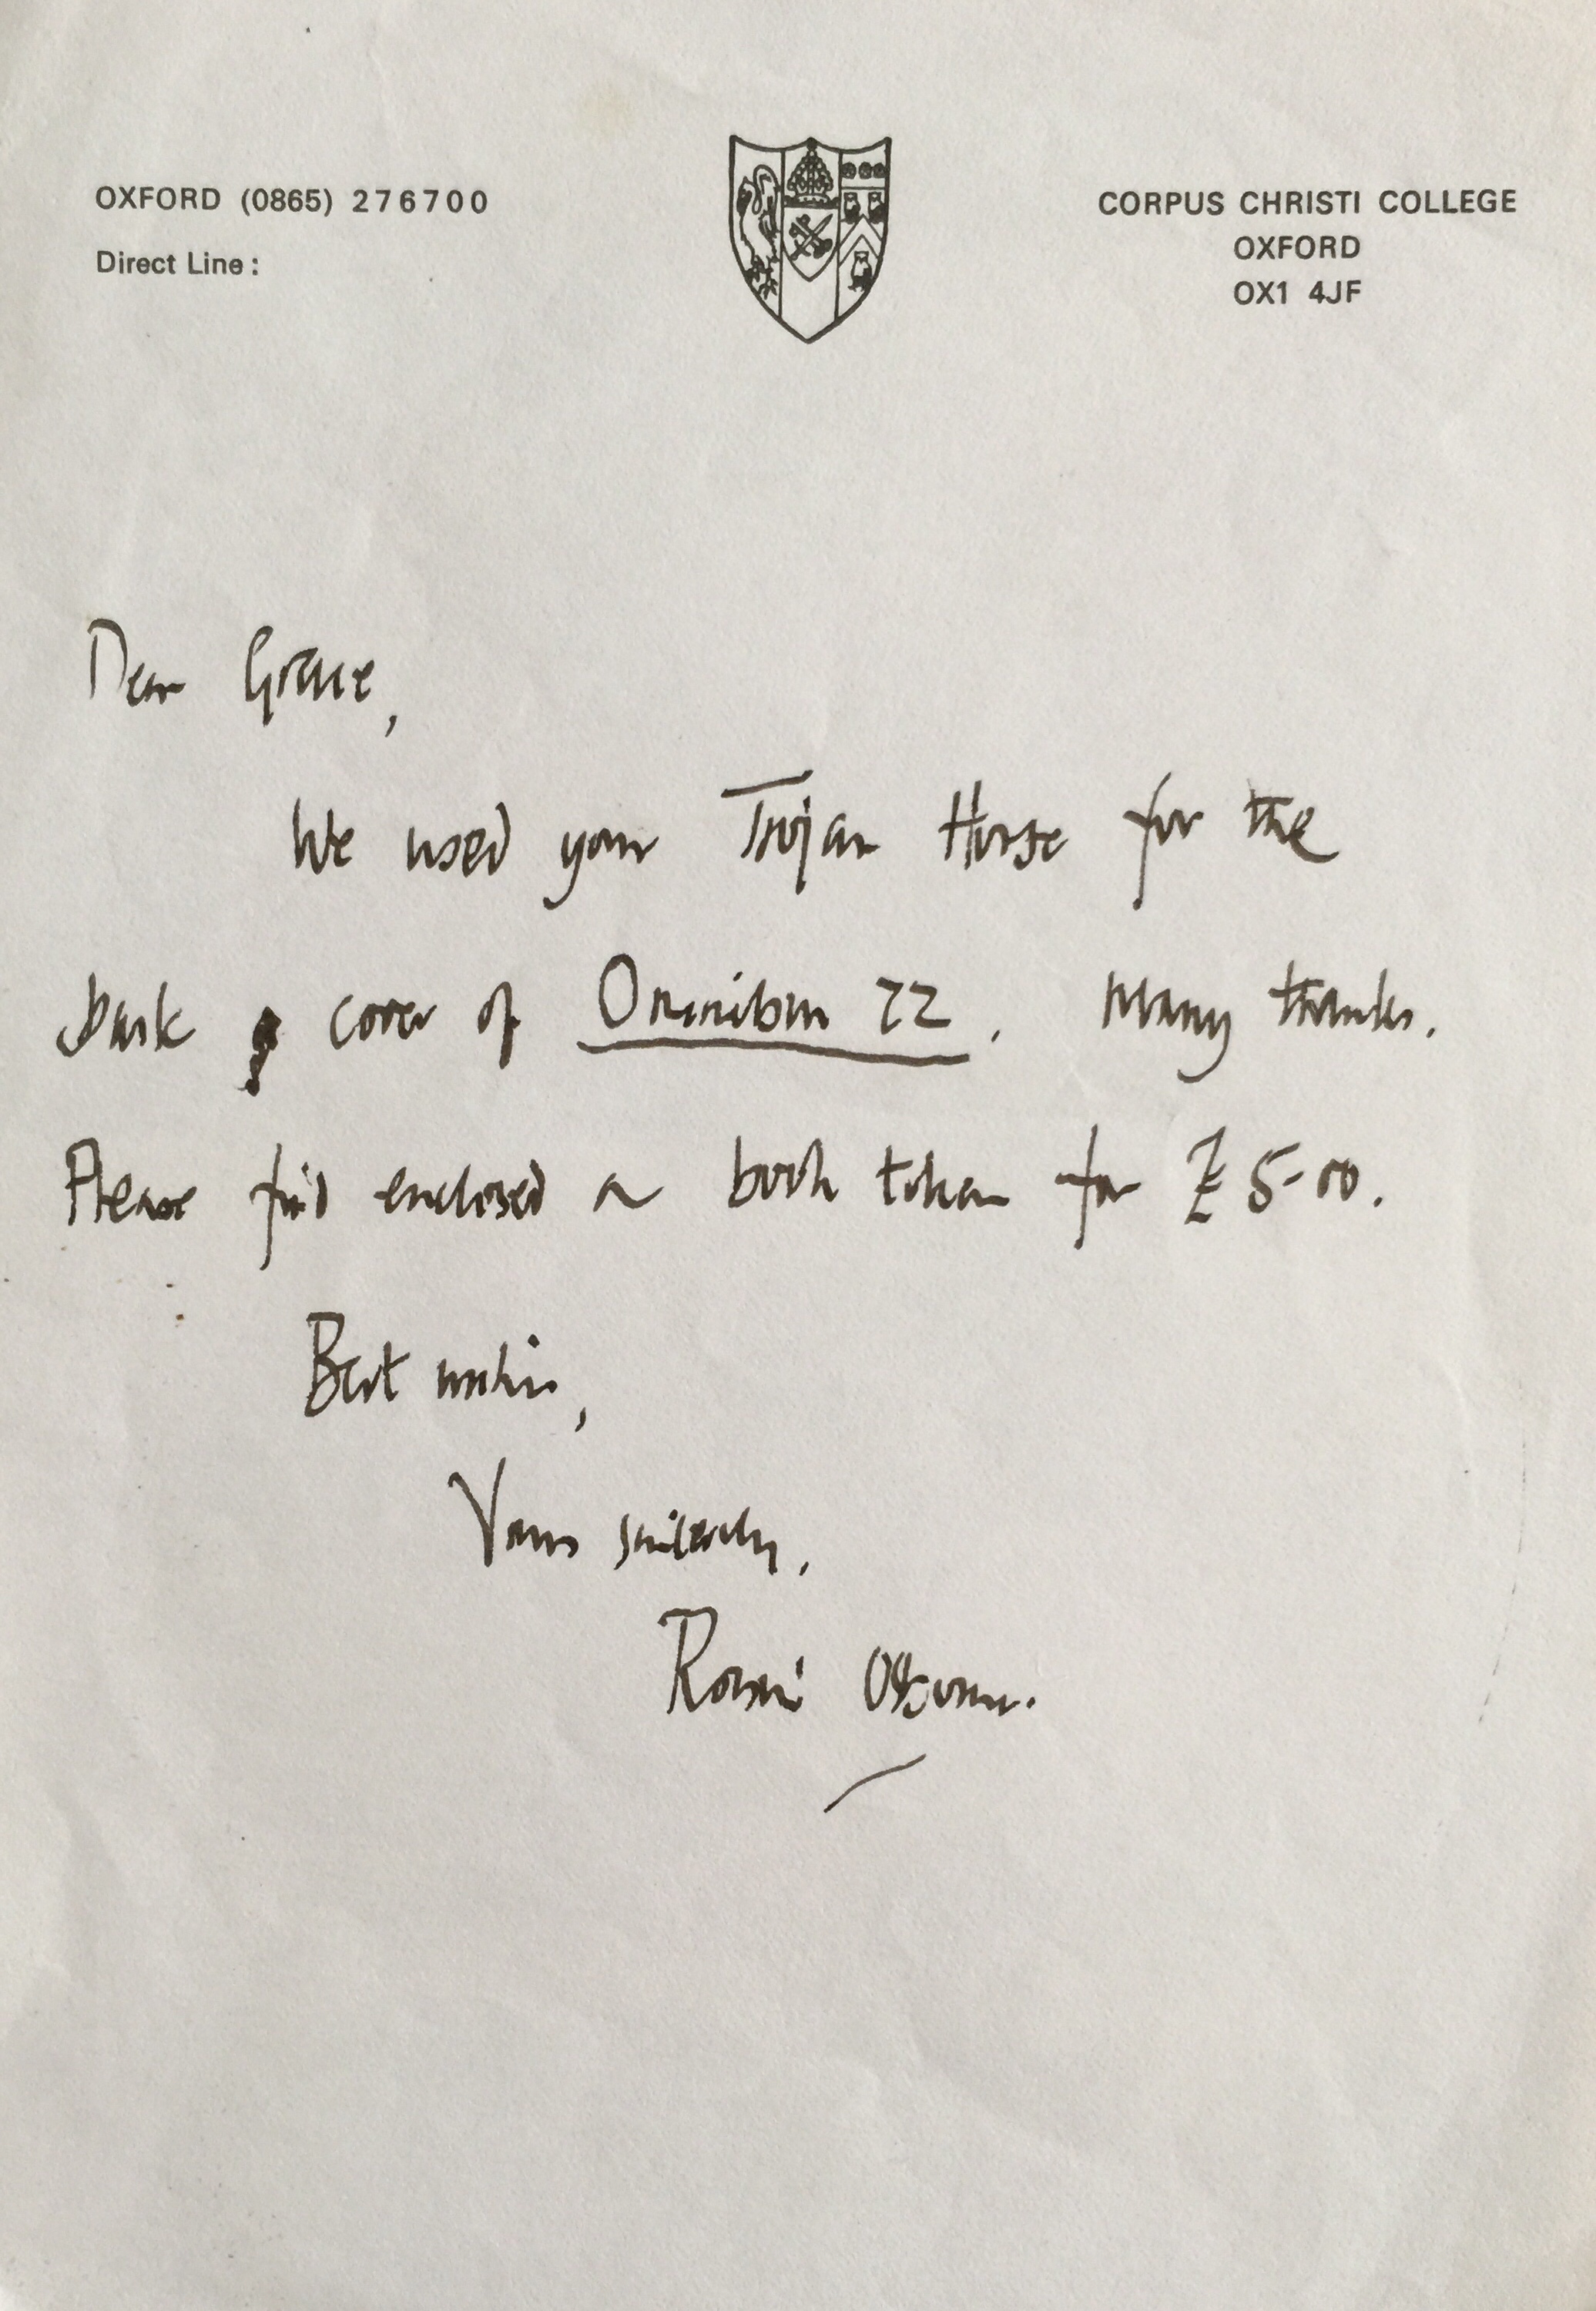 OXFORD (0865) 276700
Direct Line:
CORPUS CHRISTI COLLEGE
OXFORD
OX1 4JF
Dear Grace,
We used your Trojan Horse for the
back cover of Omnibus 22. Many thanks.
Please find enclosed a book token for £5-00.
Best wishes,
Yours sincerely,
Robin Osborne.